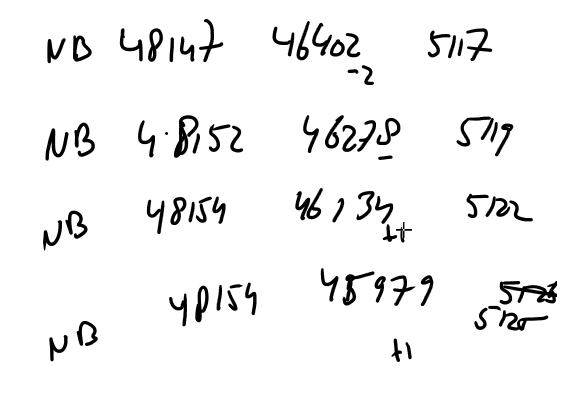 NB 48147 46402 5117
-2
NB 4.8152 46278 5119
NB 48154 46134 5122
++
NB 48154 45979 5123
5125
+1